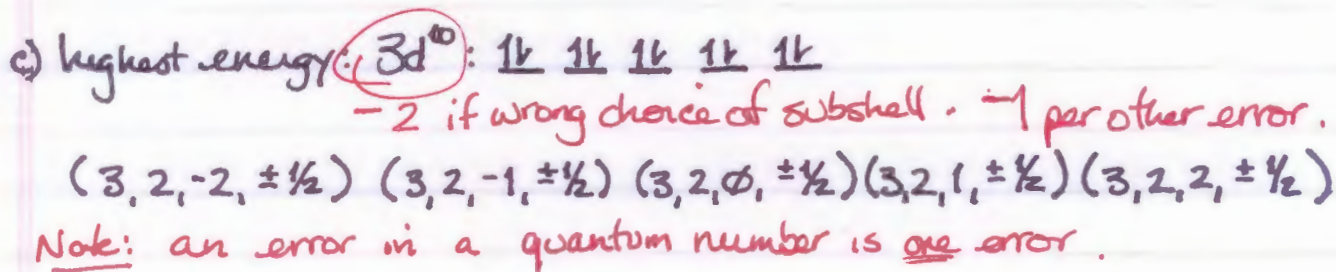 c) highest energy: 3d¹⁰: 1⇂ 1⇂ 1⇂ 1⇂ 1⇂
-2 if wrong choice of subshell. -1 per other error.
(3,2,-2, ±½) (3,2,-1,±½) (3,2,0, ±½)(3,2,1,±½)(3,2,2, ±½)
Note: an error in a quantum number is one error.